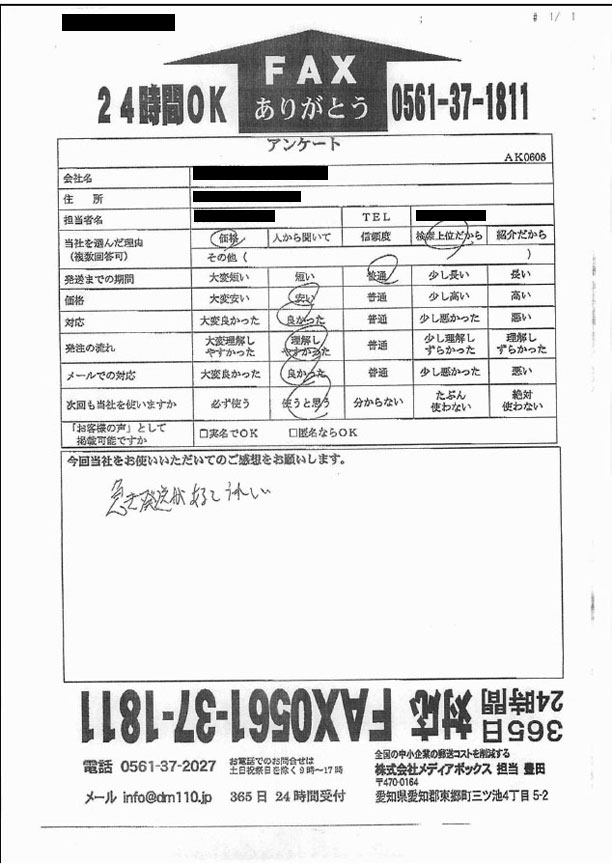 # 1/ 1
FAX
24時間OK ありがとう 0561-37-1811
アンケート
AK0608
会社名
住 所
担当者名 TEL
当社を選んだ理由 (複数回答可) 価格 人から聞いて 信頼度 検索上位だから 紹介だから
その他 ( )
発送までの期間 大変短い 短い 普通 少し長い 長い
価格 大変安い 安い 普通 少し高い 高い
対応 大変良かった 良かった 普通 少し悪かった 悪い
発注の流れ 大変理解しやすかった 理解しやすかった 普通 少し理解しずらかった 理解しずらかった
メールでの対応 大変良かった 良かった 普通 少し悪かった 悪い
次回も当社を使いますか 必ず使う 使うと思う 分からない たぶん使わない 絶対使わない
「お客様の声」として掲載可能ですか □実名でOK □匿名ならOK
今回当社をお使いいただいてのご感想をお願いします。
急き発送があるとうれしい
365日 24時間 対応 FAX0561-37-1811
電話 0561-37-2027 お電話でのお問合せは 土日祝祭日を除く9時～17時
メール info@dm110.jp 365日 24時間受付
全国の中小企業の郵送コストを削減する
株式会社メディアボックス 担当 豊田
〒470-0164
愛知県愛知郡東郷町三ツ池4丁目5-2